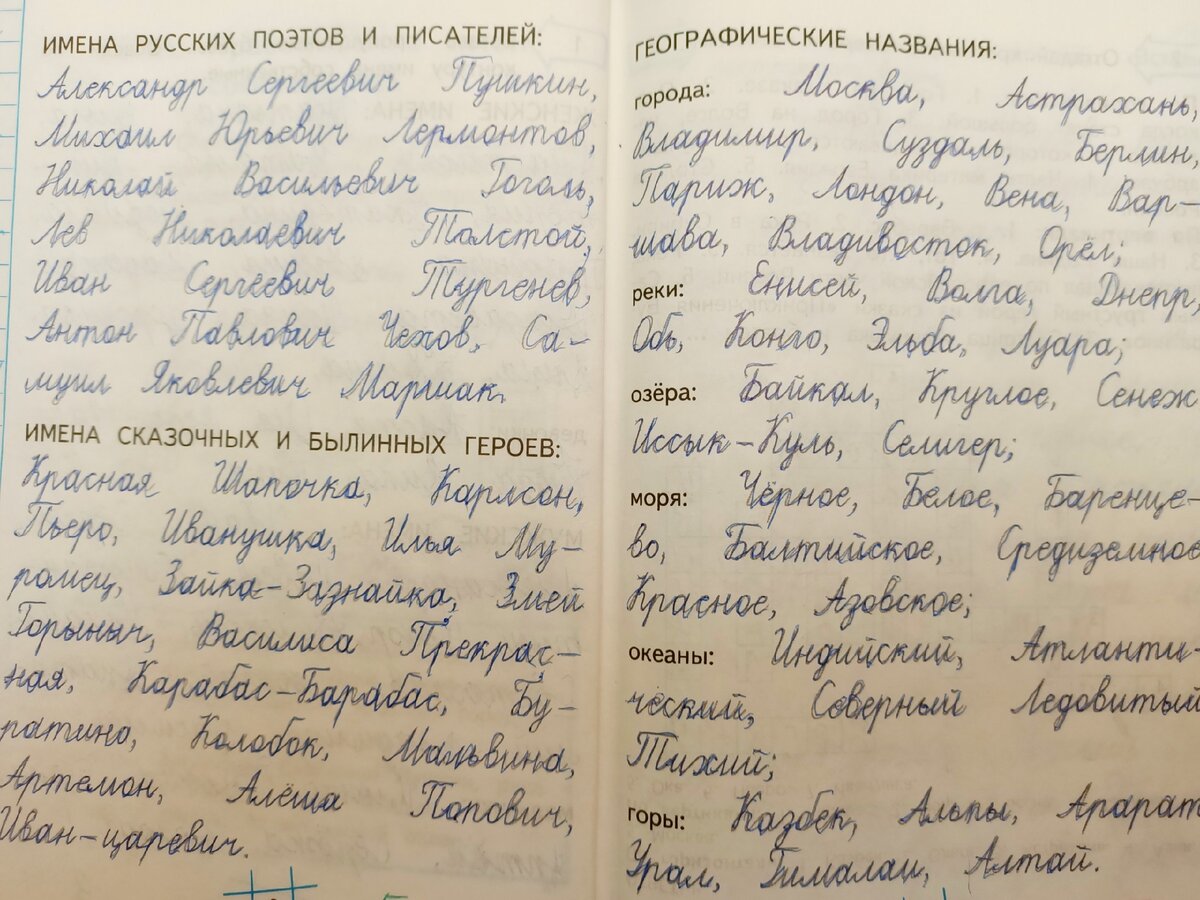 ИМЕНА РУССКИХ ПОЭТОВ И ПИСАТЕЛЕЙ:
Александр Сергеевич Пушкин,
Михаил Юрьевич Лермонтов,
Николай Васильевич Гоголь,
Лев Николаевич Толстой,
Иван Сергеевич Тургенев,
Антон Павлович Чехов, Са-
муил Яковлевич Маршак.
ИМЕНА СКАЗОЧНЫХ И БЫЛИННЫХ ГЕРОЕВ:
Красная Шапочка, Карлсон,
Пьеро, Иванушка, Илья Му-
ромец, Зайка-Зазнайка, Змей
Горыныч, Василиса Прекрас-
ная, Карабас-Барабас, Бу-
ратино, Колобок, Мальвина,
Артемон, Алёша Попович,
Иван-царевич.
ГЕОГРАФИЧЕСКИЕ НАЗВАНИЯ:
города: Москва, Астрахань,
Владимир, Суздаль, Берлин,
Париж, Лондон, Вена, Вар-
шава, Владивосток, Орёл;
реки: Енисей, Волга, Днепр,
Обь, Конго, Эльба, Луара;
озёра: Байкал, Круглое, Сенеж
Иссык-Куль, Селигер;
моря: Чёрное, Белое, Баренце-
во, Балтийское, Средиземное
Красное, Азовское;
океаны: Индийский, Атланти-
ческий, Северный Ледовитый
Тихий;
горы: Казбек, Альпы, Арарат
Урал, Гималаи, Алтай.